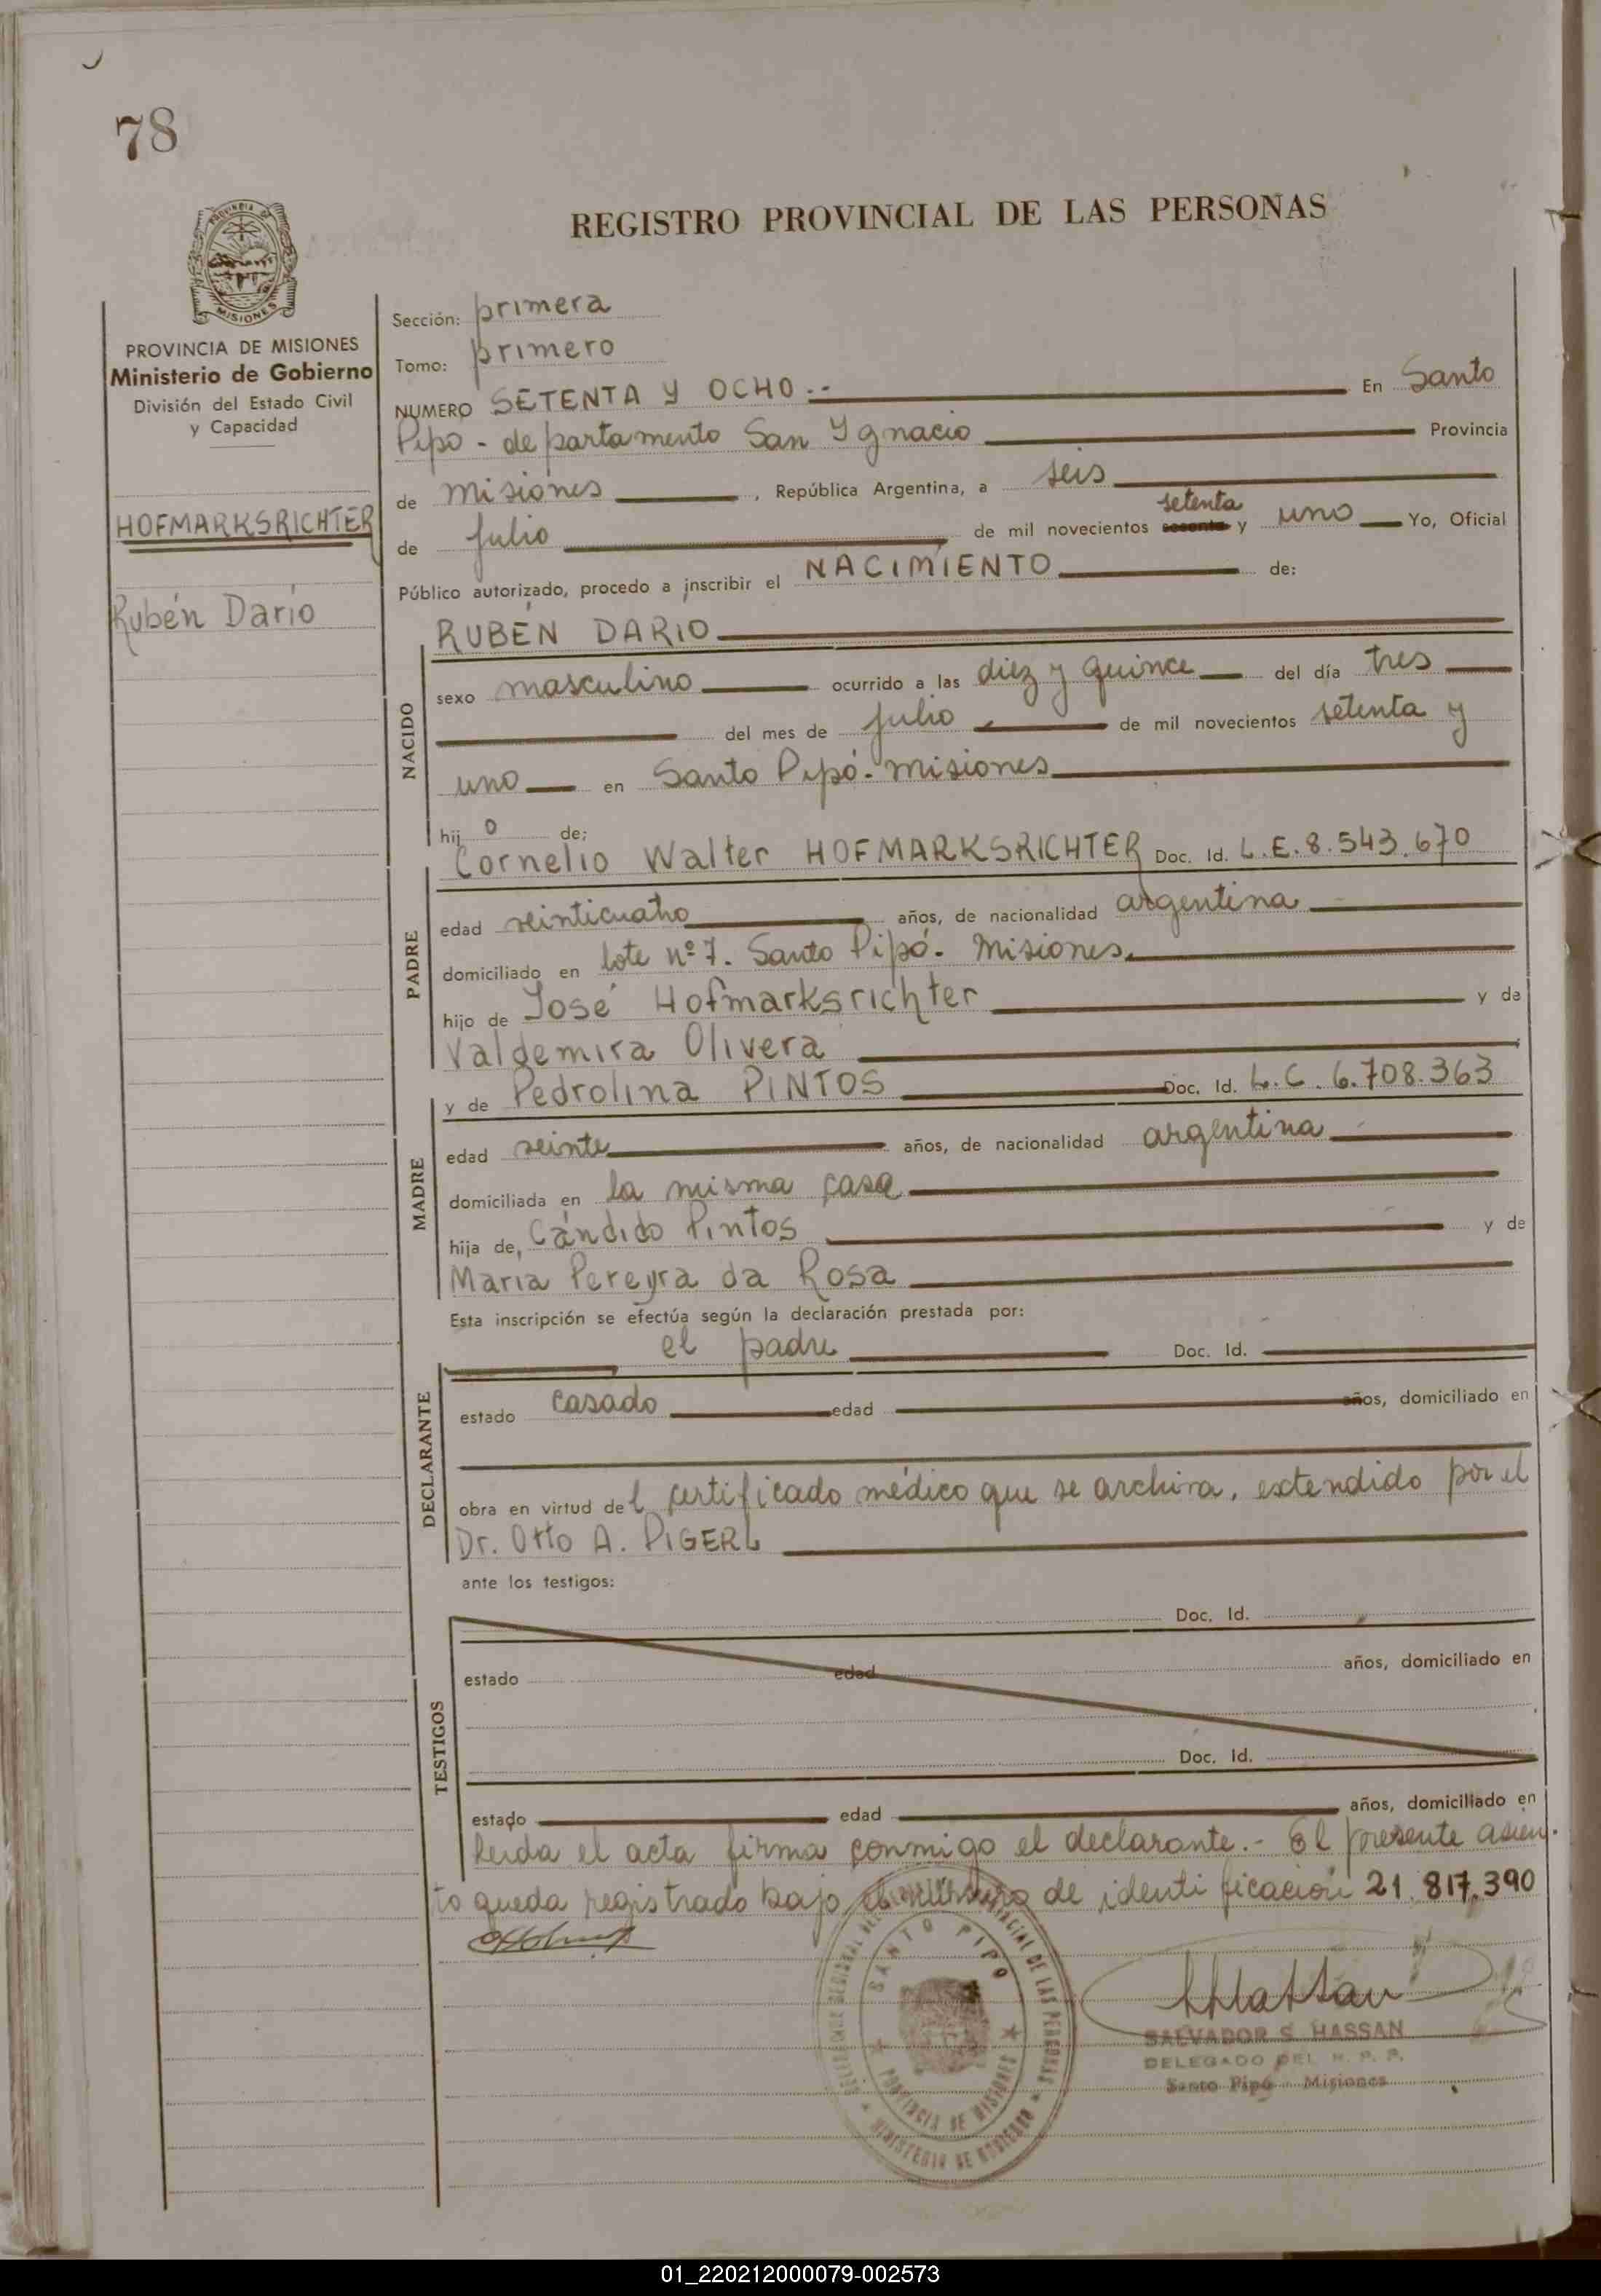 78
REGISTRO PROVINCIAL DE LAS PERSONAS
PROVINCIA DE
MISIONES
PROVINCIA DE MISIONES
Ministerio de Gobierno
División del Estado Civil
y Capacidad
HOFMARKSRICHTER
Rubén Darío
Sección: primera
Tomo: primero
NUMERO SETENTA Y OCHO.- En Santo
Pipo - departamento San Ygnacio Provincia
de Misiones, República Argentina, a seis
setenta
de julio de mil novecientos sesenta y uno Yo, Oficial
Público autorizado, procedo a inscribir el NACIMIENTO de:
RUBÉN DARIO
NACIDO
sexo masculino ocurrido a las diez y quince del día tres
del mes de julio de mil novecientos setenta y
uno en Santo Pipó - Misiones
hijo de:
PADRE
Cornelio Walter HOFMARKSRICHTER Doc. Id. L.E. 8.543.670
edad veinticuatro años, de nacionalidad argentina
domiciliado en lote nº 7. Santo Pipó - Misiones.
hijo de José Hofmarksrichter y de
Valdemira Olivera
MADRE
y de Pedrolina PINTOS Doc. Id. L.C. 6.708.363
edad veinte años, de nacionalidad argentina
domiciliada en la misma casa
hija de, Cándido Pintos y de
María Pereyra da Rosa
Esta inscripción se efectúa según la declaración prestada por:
DECLARANTE
el padre Doc. Id.
estado casado edad años, domiciliado en
obra en virtud del certificado médico que se archiva, extendido por el
Dr. Otto A. PIGERL
ante los testigos:
TESTIGOS
Doc. Id.
estado edad años, domiciliado en
Doc. Id.
estado edad años, domiciliado en
Leída el acta firma conmigo el declarante.- El presente asien-
to queda registrado bajo el número de identificación 21.817.390
SANTO PIPO
PROVINCIA DE MISIONES
MINISTERIO DE GOBIERNO
SALVADOR S. HASSAN
DELEGADO DEL R. P. P.
Santo Pipó - Misiones
01_220212000079-002573